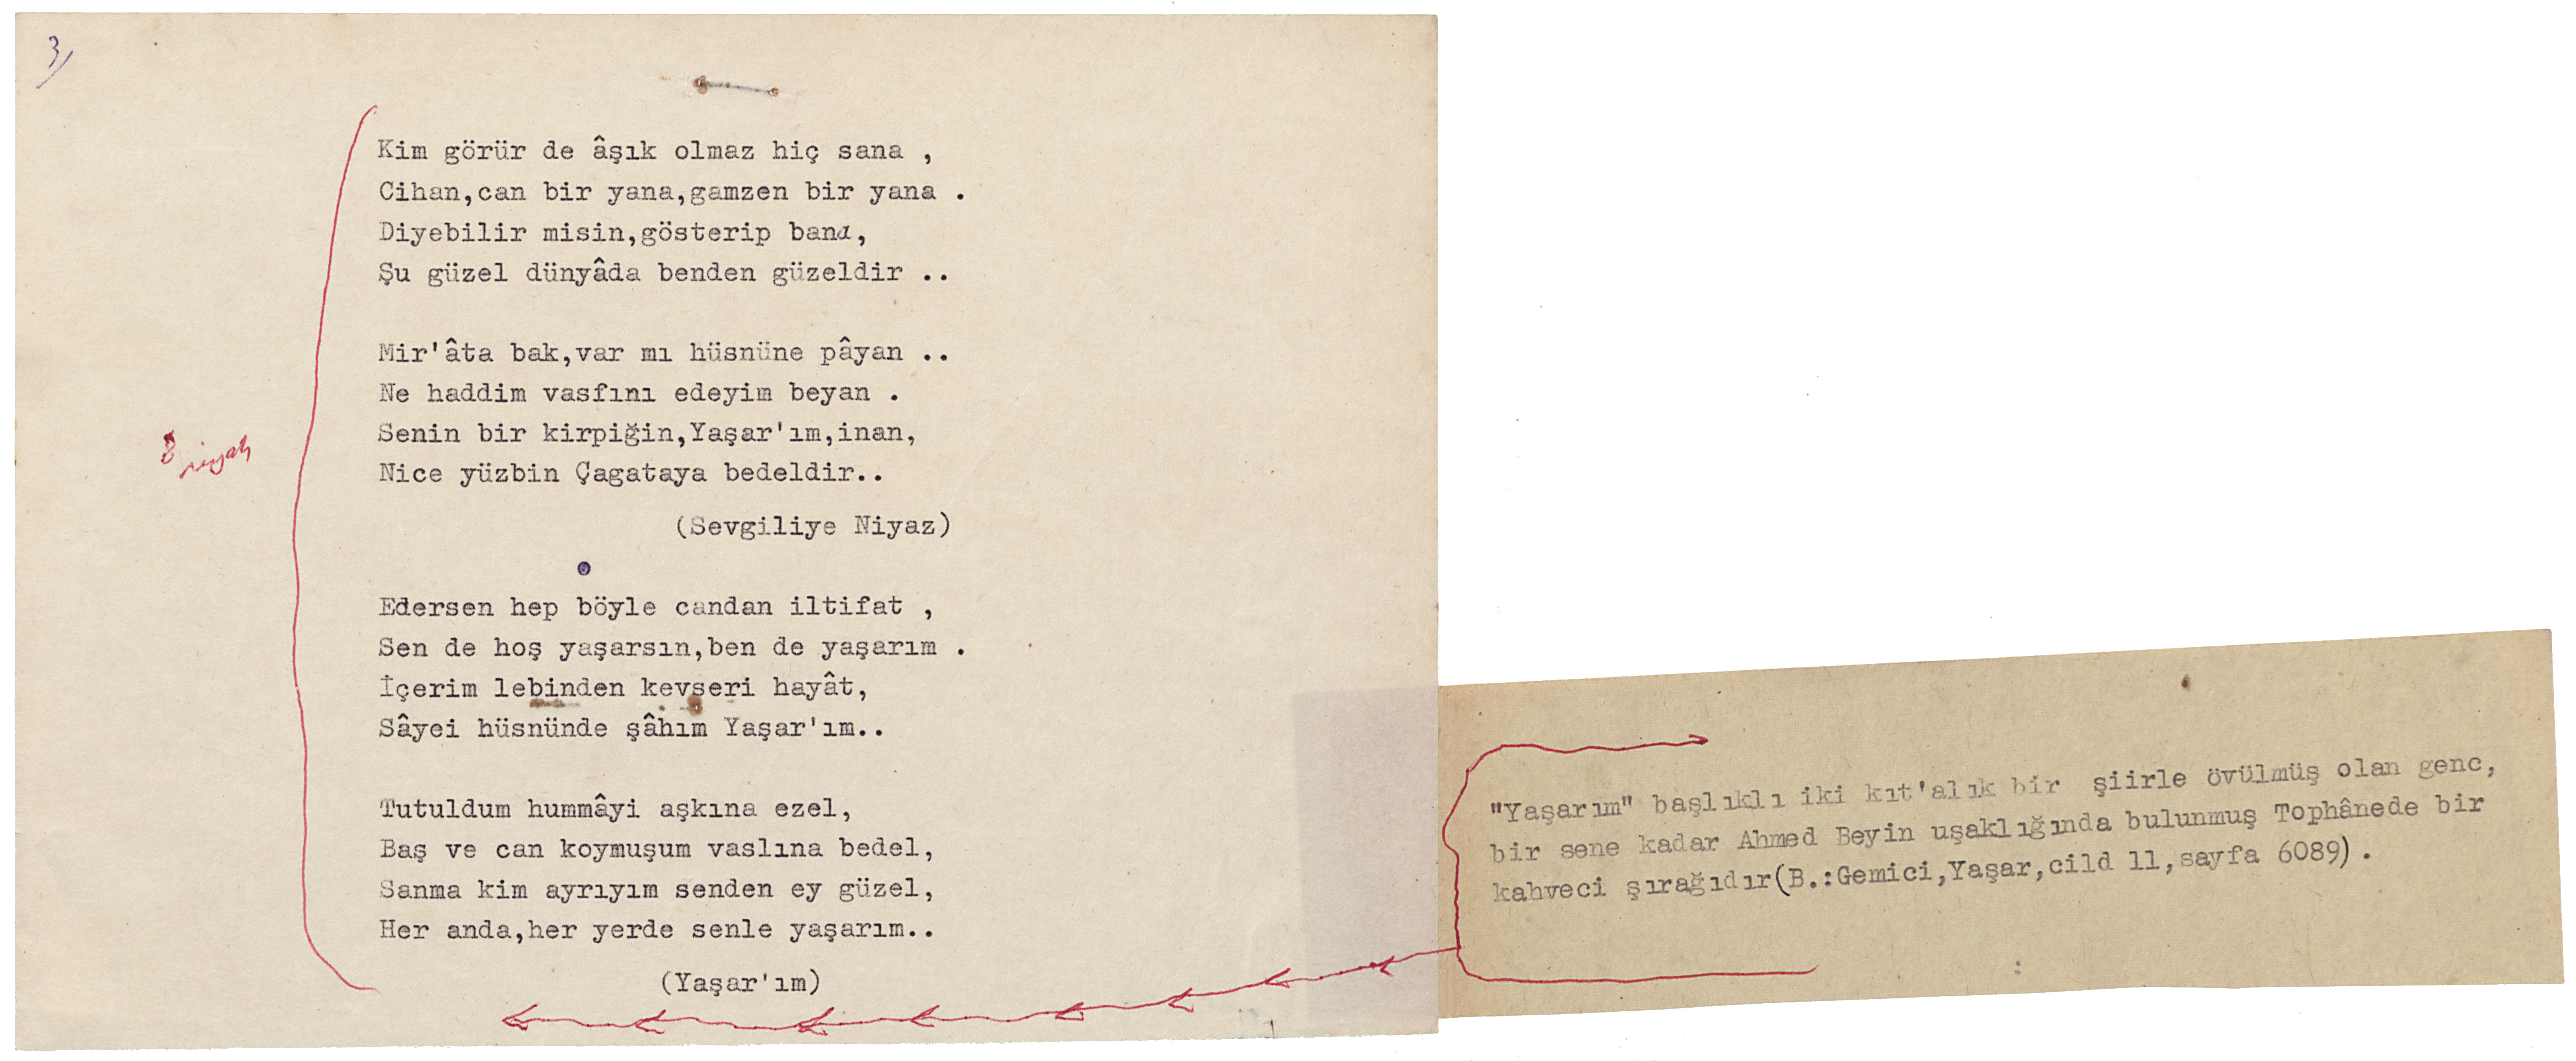 3)
Kim görür de âşık olmaz hiç sana ,
Cihan,can bir yana,gamzen bir yana .
Diyebilir misin,gösterip bana,
Şu güzel dünyâda benden güzeldir ..
Mir'âta bak,var mı hüsnüne pâyan ..
Ne haddim vasfını edeyim beyan .
8 siyah
Senin bir kirpiğin,Yaşar'ım,inan,
Nice yüzbin Çagataya bedeldir..
(Sevgiliye Niyaz)
Edersen hep böyle candan iltifat ,
Sen de hoş yaşarsın,ben de yaşarım .
İçerim lebinden kevseri hayât,
Sâyei hüsnünde şâhım Yaşar'ım..
Tutuldum hummâyi aşkına ezel,
Baş ve can koymuşum vaslına bedel,
Sanma kim ayrıyım senden ey güzel,
Her anda,her yerde senle yaşarım..
(Yaşar'ım)
"Yaşarım" başlıklı iki kıt'alık bir şiirle övülmüş olan genc,
bir sene kadar Ahmed Beyin uşaklığında bulunmuş Tophânede bir
kahveci şırağıdır(B.:Gemici,Yaşar,cild 11,sayfa 6089).